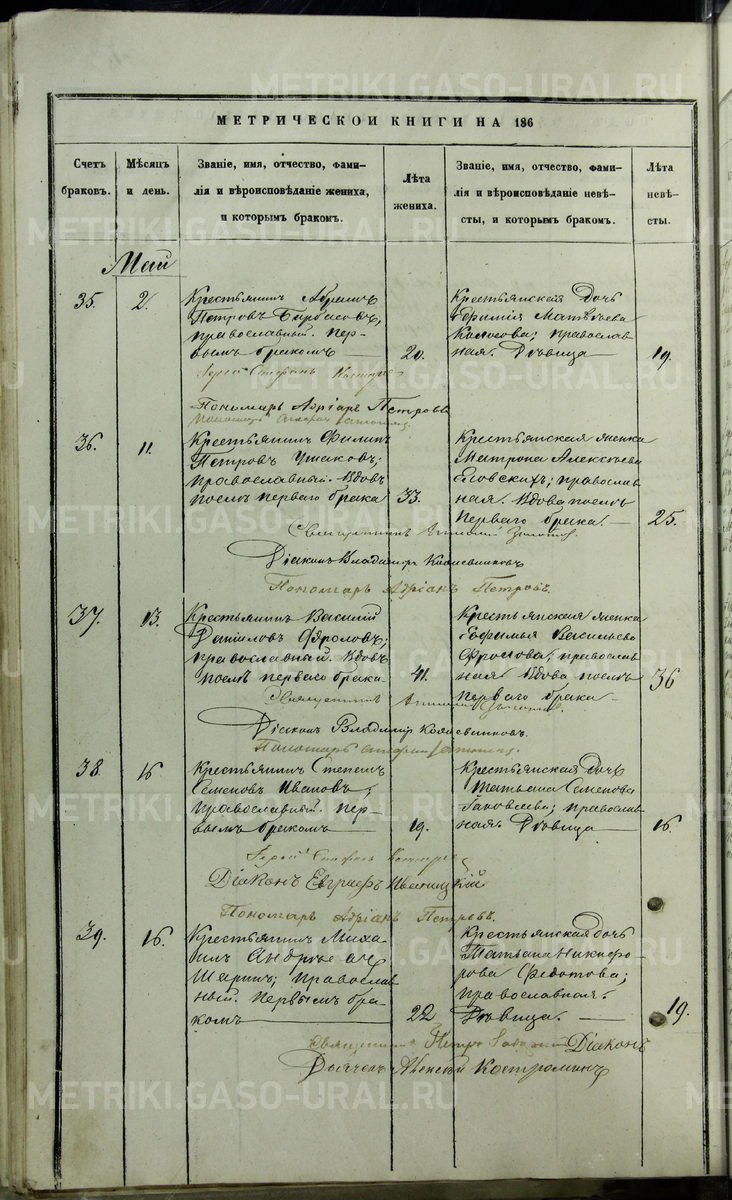 МЕТРИЧЕСКОЙ КНИГИ НА 186
Счетъ браковъ.
Мѣсяцъ и день.
Званіе, имя, отчество, фами-
лія и вѣроисповѣданіе жениха,
и которымъ бракомъ.
Лѣта жениха.
Званіе, имя, отчество, фами-
лія и вѣроисповѣданіе невѣ-
сты, и которымъ бракомъ.
Лѣта невѣ-
сты.
Май
35.
2.
Крестьянинъ Абрамъ
Петровъ
православный. Пер-
вымъ бракомъ
20.
Крестьянская дочь
Ефимія Матвѣева
Колосова; православ
ная. Дѣвица
19.
Іерей Стефанъ
Пономарь Адріанъ Петровъ
36.
11.
Крестьянинъ Филипъ
Петровъ Ушаковъ;
православный. Вдовъ
послѣ перваго брака
33.
Крестьянская женка
Матрона Алексѣева
православ
ная. Вдова послѣ
перваго брака.
25.
Священникъ
Діаконъ Владиміръ
Пономарь Адріанъ Петровъ.
37.
13.
Крестьянинъ Василій
Даниловъ Фроловъ;
православный. Вдовъ
послѣ перваго брака
41.
Крестьянская женка
Евфимья Васильева
православ
ная Вдова послѣ
перваго брака
36
Священникъ
Діаконъ Владиміръ
Пономарь
38.
16
Крестьянинъ Степанъ
Семеновъ Ивановъ;
православный. Пер-
вымъ бракомъ
19.
Крестьянская дочь
Татьана Семенова
Яковлева; православ
ная. Дѣвица
16.
Іерей Стефанъ
Діаконъ Евграфъ Ивеницкій
Пономарь Адріанъ Петровъ.
39.
16.
Крестьянинъ Миха
илъ Андрѣевъ
Шаринъ; православ
ный. Первымъ бра-
комъ
22
Крестьянская дочь
Татьана Никифо-
рова Федотова;
православная.
Дѣвица.
19.
Священникъ Петръ Діаконъ
Дьячекъ Алексѣй Костроминъ
METRIKI.GASO-URAL.RU